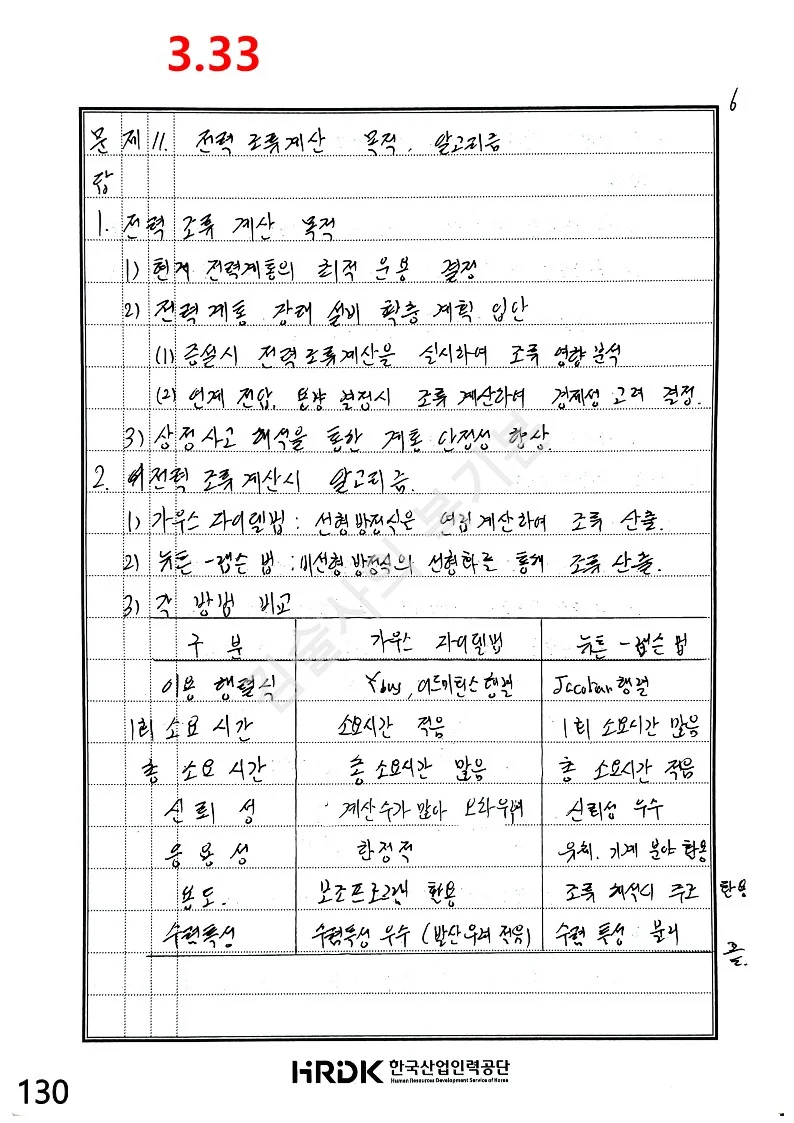 3.33
6
문 제 11. 전력 조류계산 목적, 알고리즘
답
1. 전력 조류 계산 목적
1) 현재 전력계통의 최적 운용 결정
2) 전력계통 장래 설비 확충 계획 입안
(1) 증설시 전력조류계산을 실시하여 조류 영향 분석
(2) 연계 전압, 용량 결정시 조류 계산하여 경제성 고려 결정.
3) 상정사고 해석을 통한 계통 안정성 향상.
2. 전력 조류 계산시 알고리즘.
1) 가우스 자이델법 : 선형방정식은 연립계산하여 조류 산출.
2) 뉴튼-랩슨 법 : 비선형방정식의 선형화를 통해 조류 산출.
3) 각 방법 비교
구 분 가우스 자이델법 뉴튼-랩슨 법
이용 행렬식 Ybus, 어드미턴스행렬 Jacobian 행렬
1회 소요 시간 소요시간 적음 1회 소요시간 많음
총 소요 시간 총 소요시간 많음 총 소요시간 적음
신 뢰 성 계산수가 많아 오차우려 신뢰성 우수
응 용 성 한정적 유체, 기계 분야 활용
용도. 보조프로그램 활용 조류 해석시 주로 활용
수렴특성 수렴특성 우수 (발산우려 적음) 수렴 특성 불리
끝.
김술사의 복기본
HRDK 한국산업인력공단
Human Resources Development Service of Korea
130